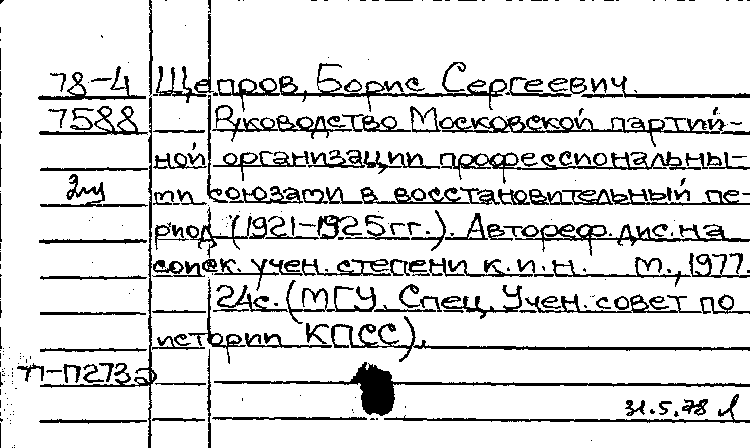 78-4 Щепров, Борис Сергеевич.
7588 Руководство Московской партий-
ной организации профессиональны-
ми союзами в восстановительный пе-
риод (1921-1925гг.). Автореф. дис. на
соиск. учен. степени к.и.н. М., 1977.
24с. (МГУ. Спец. Учен. совет по
истории КПСС).
31.5.78